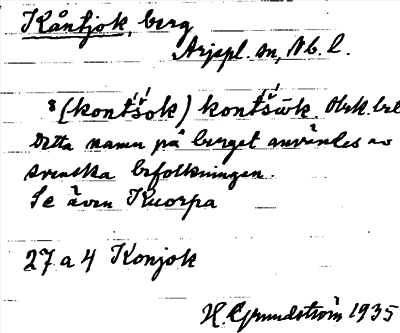 Kåntjok, berg
Arjepl. sn, Nb. l.
8 (kontšok) kontšūk. Obek. bel
Detta namn på berget användes av
svenska befolkningen.
Se även Kuorpa
27 a 4 Konjok
H. Grundström 1935